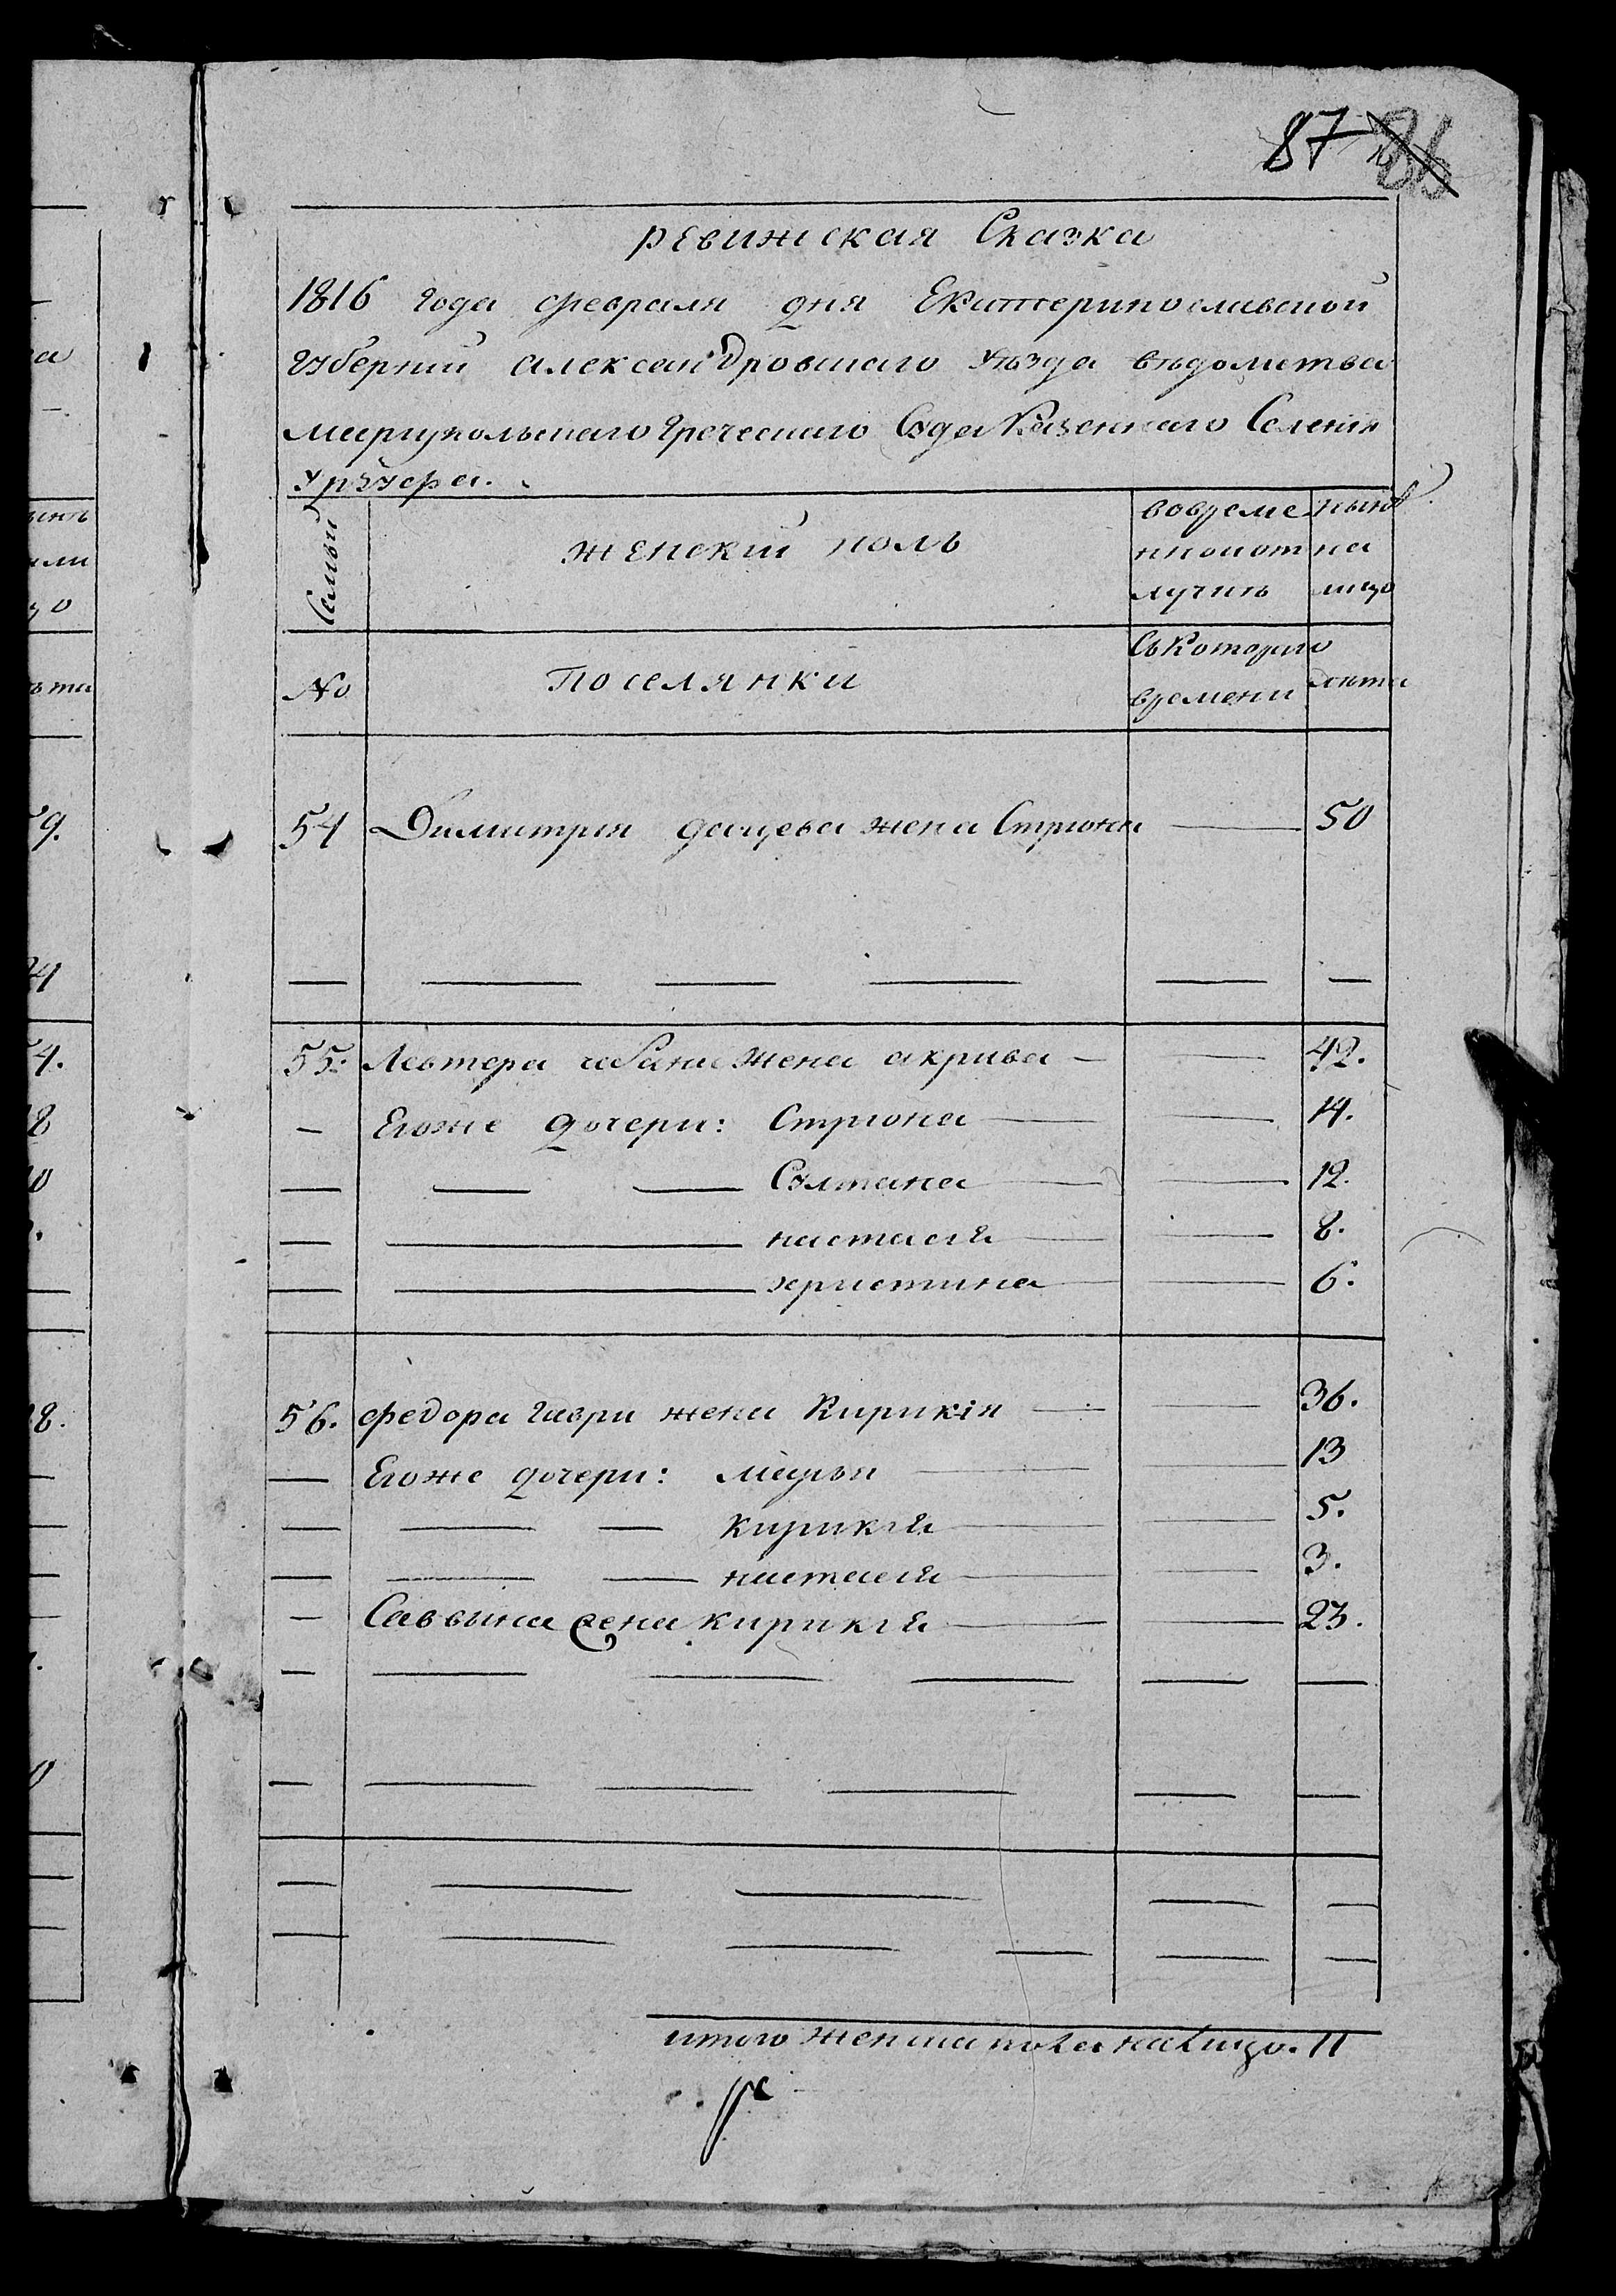 87 86
ревижская Сказка
1816 года февраля дня Екатеринославской
губерний александровскаго уѣзда вѣдомства
мариупольскаго греческаго Суда Казеннаго Селенія
урзуфа.
Семьи
женский полъ
вовреме
нной от
лучить
нынѣ
на
лицо
No
Поселянки
Съ Котораго
времени
лѣта
54 Димитрія дацева жена Стріона — 50
— — — — — —
55. Левтера чабана жена акрива — — 42.
— Егоже дочери: Стріона — — 14.
— — — Султана — — 12.
— — настасія — — 8.
— — христина — — 6.
56. федора гаври жена Кирикія — — 36.
— Егоже дочери: марья — — 13
— — — кирикія — — 5.
— — — настасія — — 3.
— Саввина жена кирикія — — 23.
— — — — — —
— — — — — —
— — — — —
— — — — — —
итого женска пола на лицо. 11
9.
4.
8
8.